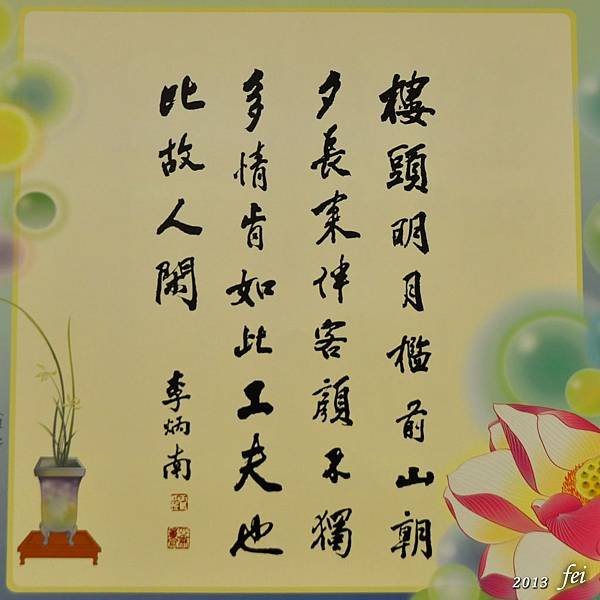 樓頭明月檻前山朝
夕長來伴客顏不獨
多情肯如此工夫也
比故人閑
李炳南
2013 fei